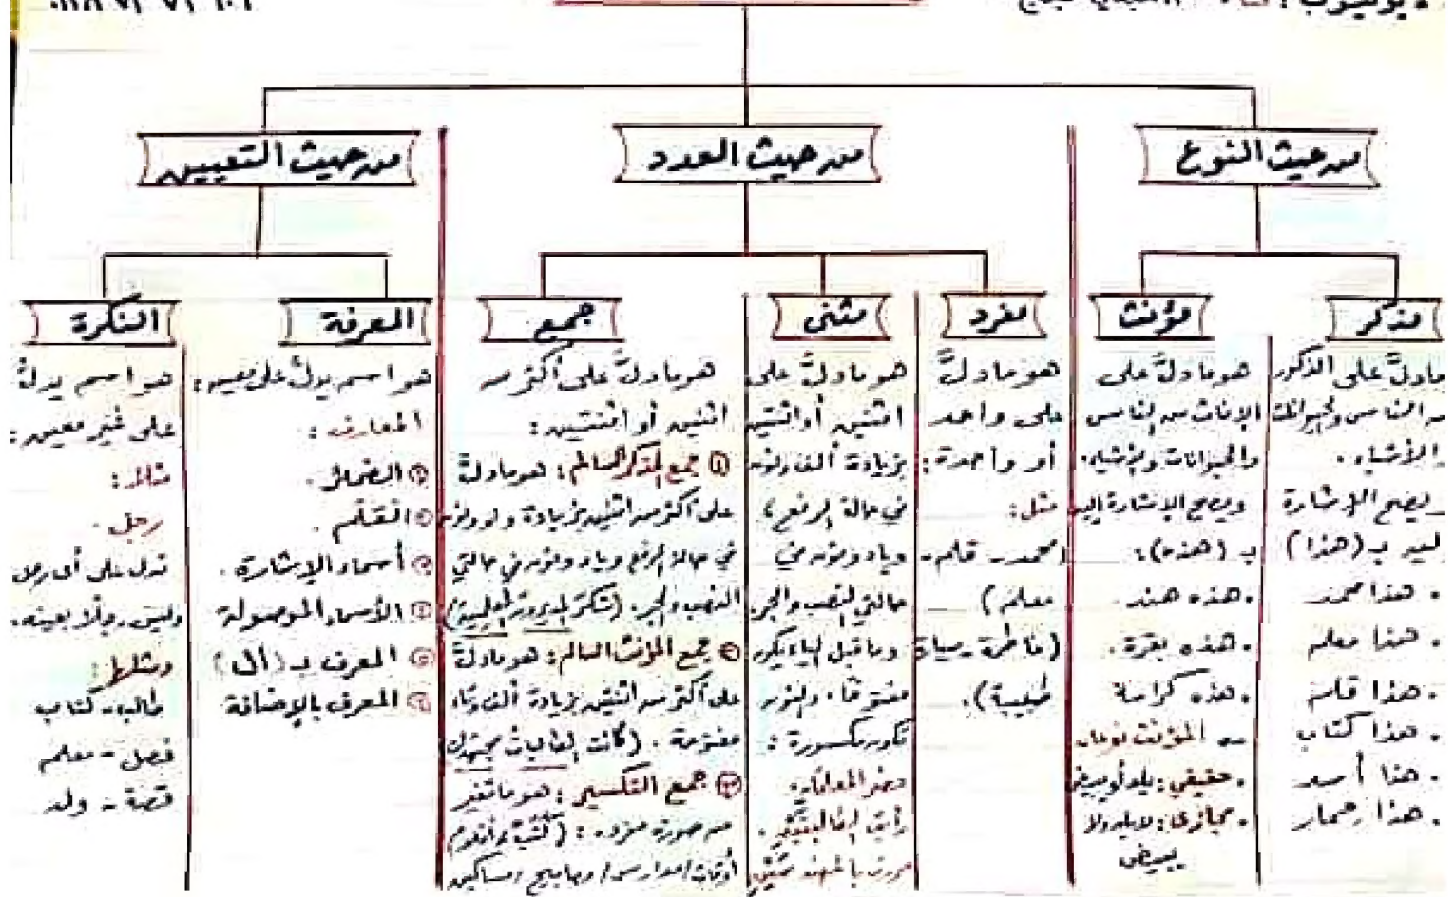 من حيث النوع
من حيث العدد
من حيث التعيين
مذكر
مؤنث
مفرد
مثنى
جمع
المعرفة
النكرة
مادلَّ على الذكور
من الناس والحيوانات
والأشياء .
ويصح الإشارة
إليه بـ (هذا)
. هذا محمد
. هذا معلم
. هذا قلم
. هذا كتاب
. هذا أسد
. هذا حمار
هو مادلَّ على
الإناث من الناس
والحيوانات والأشياء.
ويصح الإشارة إليه
بـ (هذه):
. هذه هند
. هذه بقرة .
. هذه كراسة
المؤنث نوعان
. حقيقي : يلد أو يبيض
. مجازى : لا يلد ولا
يبيض
هو مادلَّ
على واحد
أو واحدة :
مثل :
(محمد - قلم -
معلم)
(فاطمة -
طبيبة ).
هو مادلَّ على
اثنين أو اثنتين
بزيادة ألف ونون
في حالة الرفع ،
وياء ونون في
حالتي النصب والجر
وما قبل الياء يكون
مفتوحًا ، والنون
تكون مكسورة :
حضر المعلمان
رأيت الطالبتين .
مررت
هو مادلَّ على أكثر من
اثنين أو اثنتين :
① جمع المذكر السالم : هو مادلَّ
على أكثر من اثنين بزيادة واو ونون
في حالة الرفع وياء ونون في حالتي
النصب والجر .
② جمع المؤنث السالم : هو مادلَّ
على أكثر من اثنتين بزيادة ألف وتاء
مفتوحة . (كانت الطالبات مجتهدات)
③ جمع التكسير : هو ما تغير
من صورة مفرده :
مدارس / مصابيح / مساكين
هو اسم يدلُّ على معين :
المعارف :
① الضمائر .
② العَلَم .
③ أسماء الإشارة .
④ الأسماء الموصولة
⑤ المعرف بـ (أل)
⑥ المعرف بالإضافة
هو اسم يدلُّ
على غير معين :
مثال :
رجل .
تدل على أى رجل
وليس رجلًا بعينه .
ومثلها :
طالب - كتاب
فصل - معلم
قصة - ولد